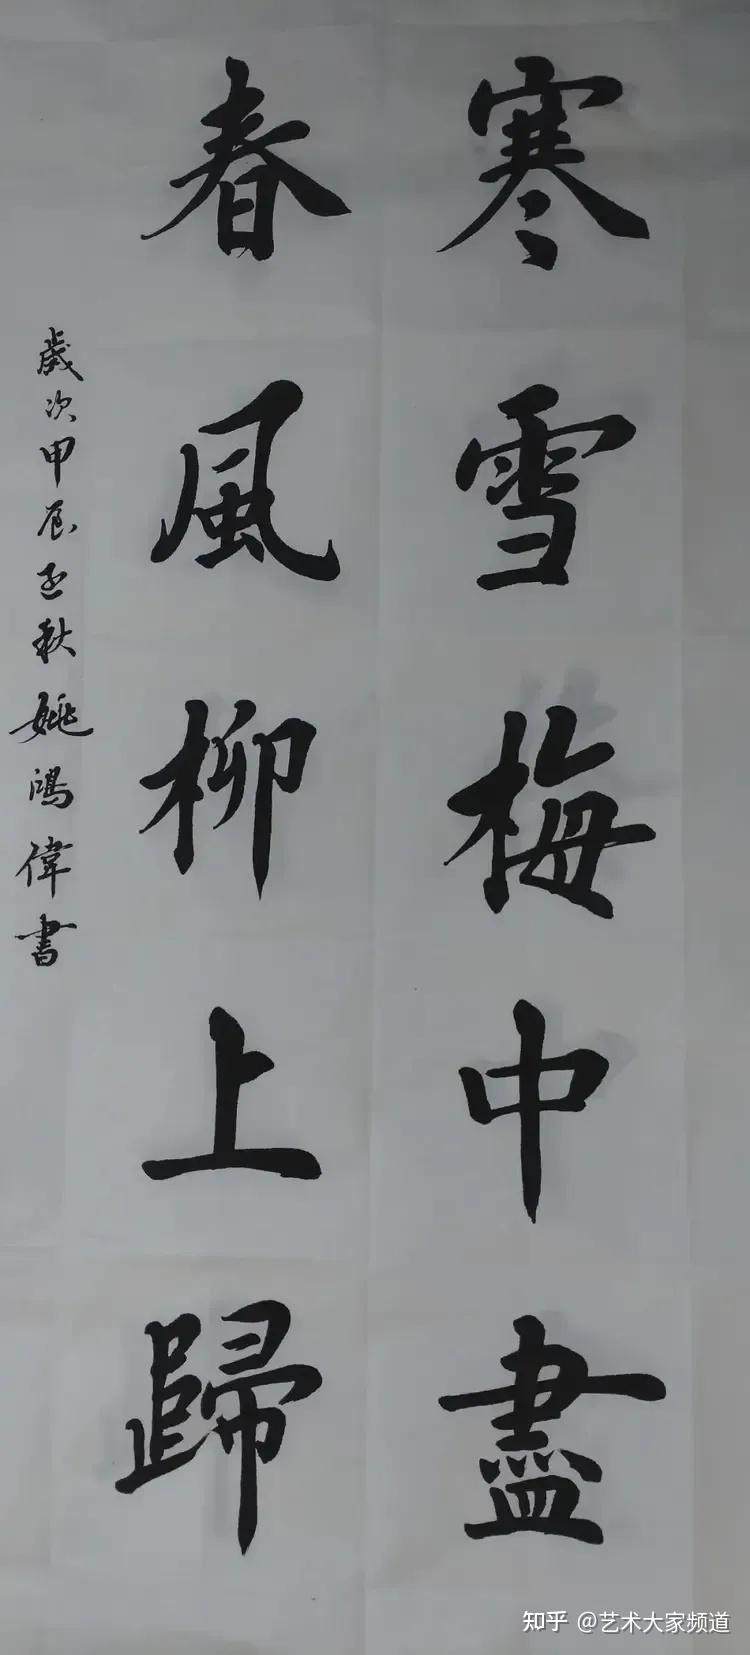 寒雪梅中盡
春風柳上歸
歲次甲辰孟秋姚鴻偉書
知乎 @艺术大家频道